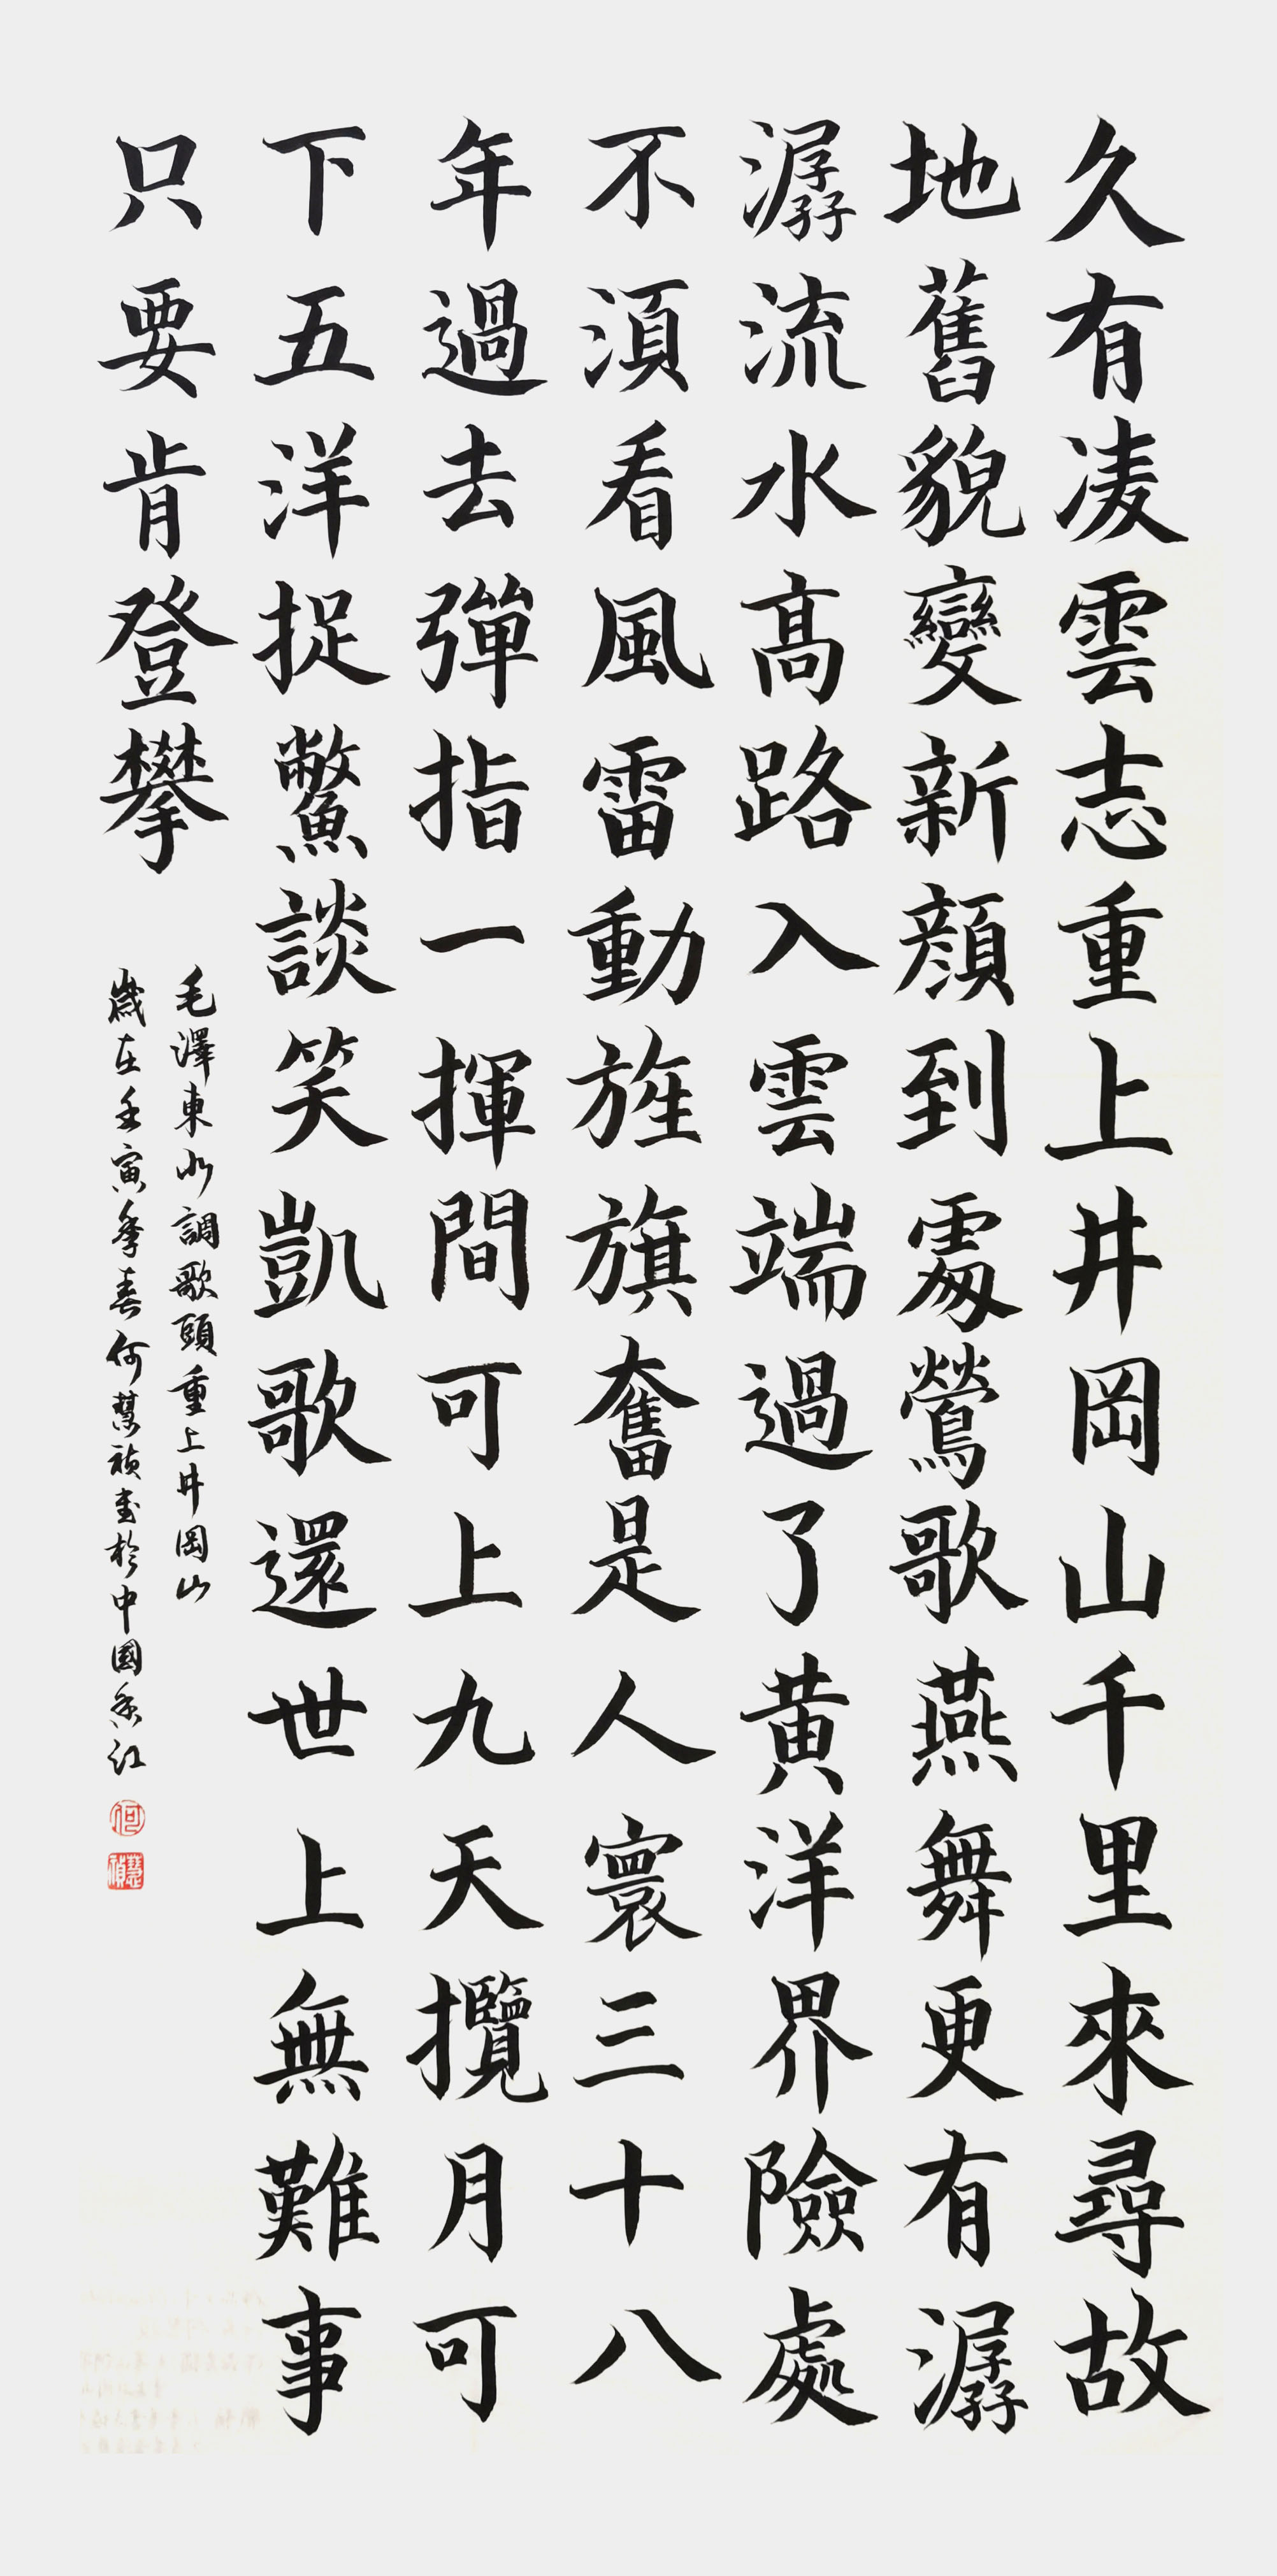 久有凌雲志重上井岡山千里來尋故
地舊貌變新顏到處鶯歌燕舞更有潺
潺流水高路入雲端過了黃洋界險處
不須看風雷動旌旗奮是人寰三十八
年過去彈指一揮間可上九天攬月可
下五洋捉鱉談笑凱歌還世上無難事
只要肯登攀
毛澤東水調歌頭重上井岡山
歲在壬寅季春何慧禎書於中國香江
何
慧禎